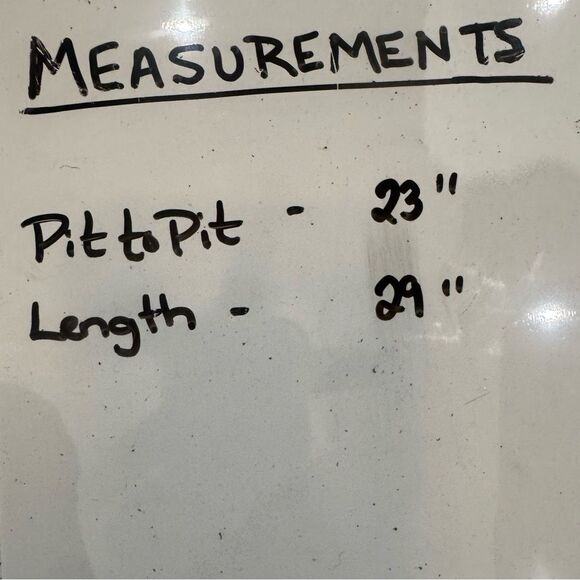 MEASUREMENTS
Pit to Pit - 23"
Length - 29"